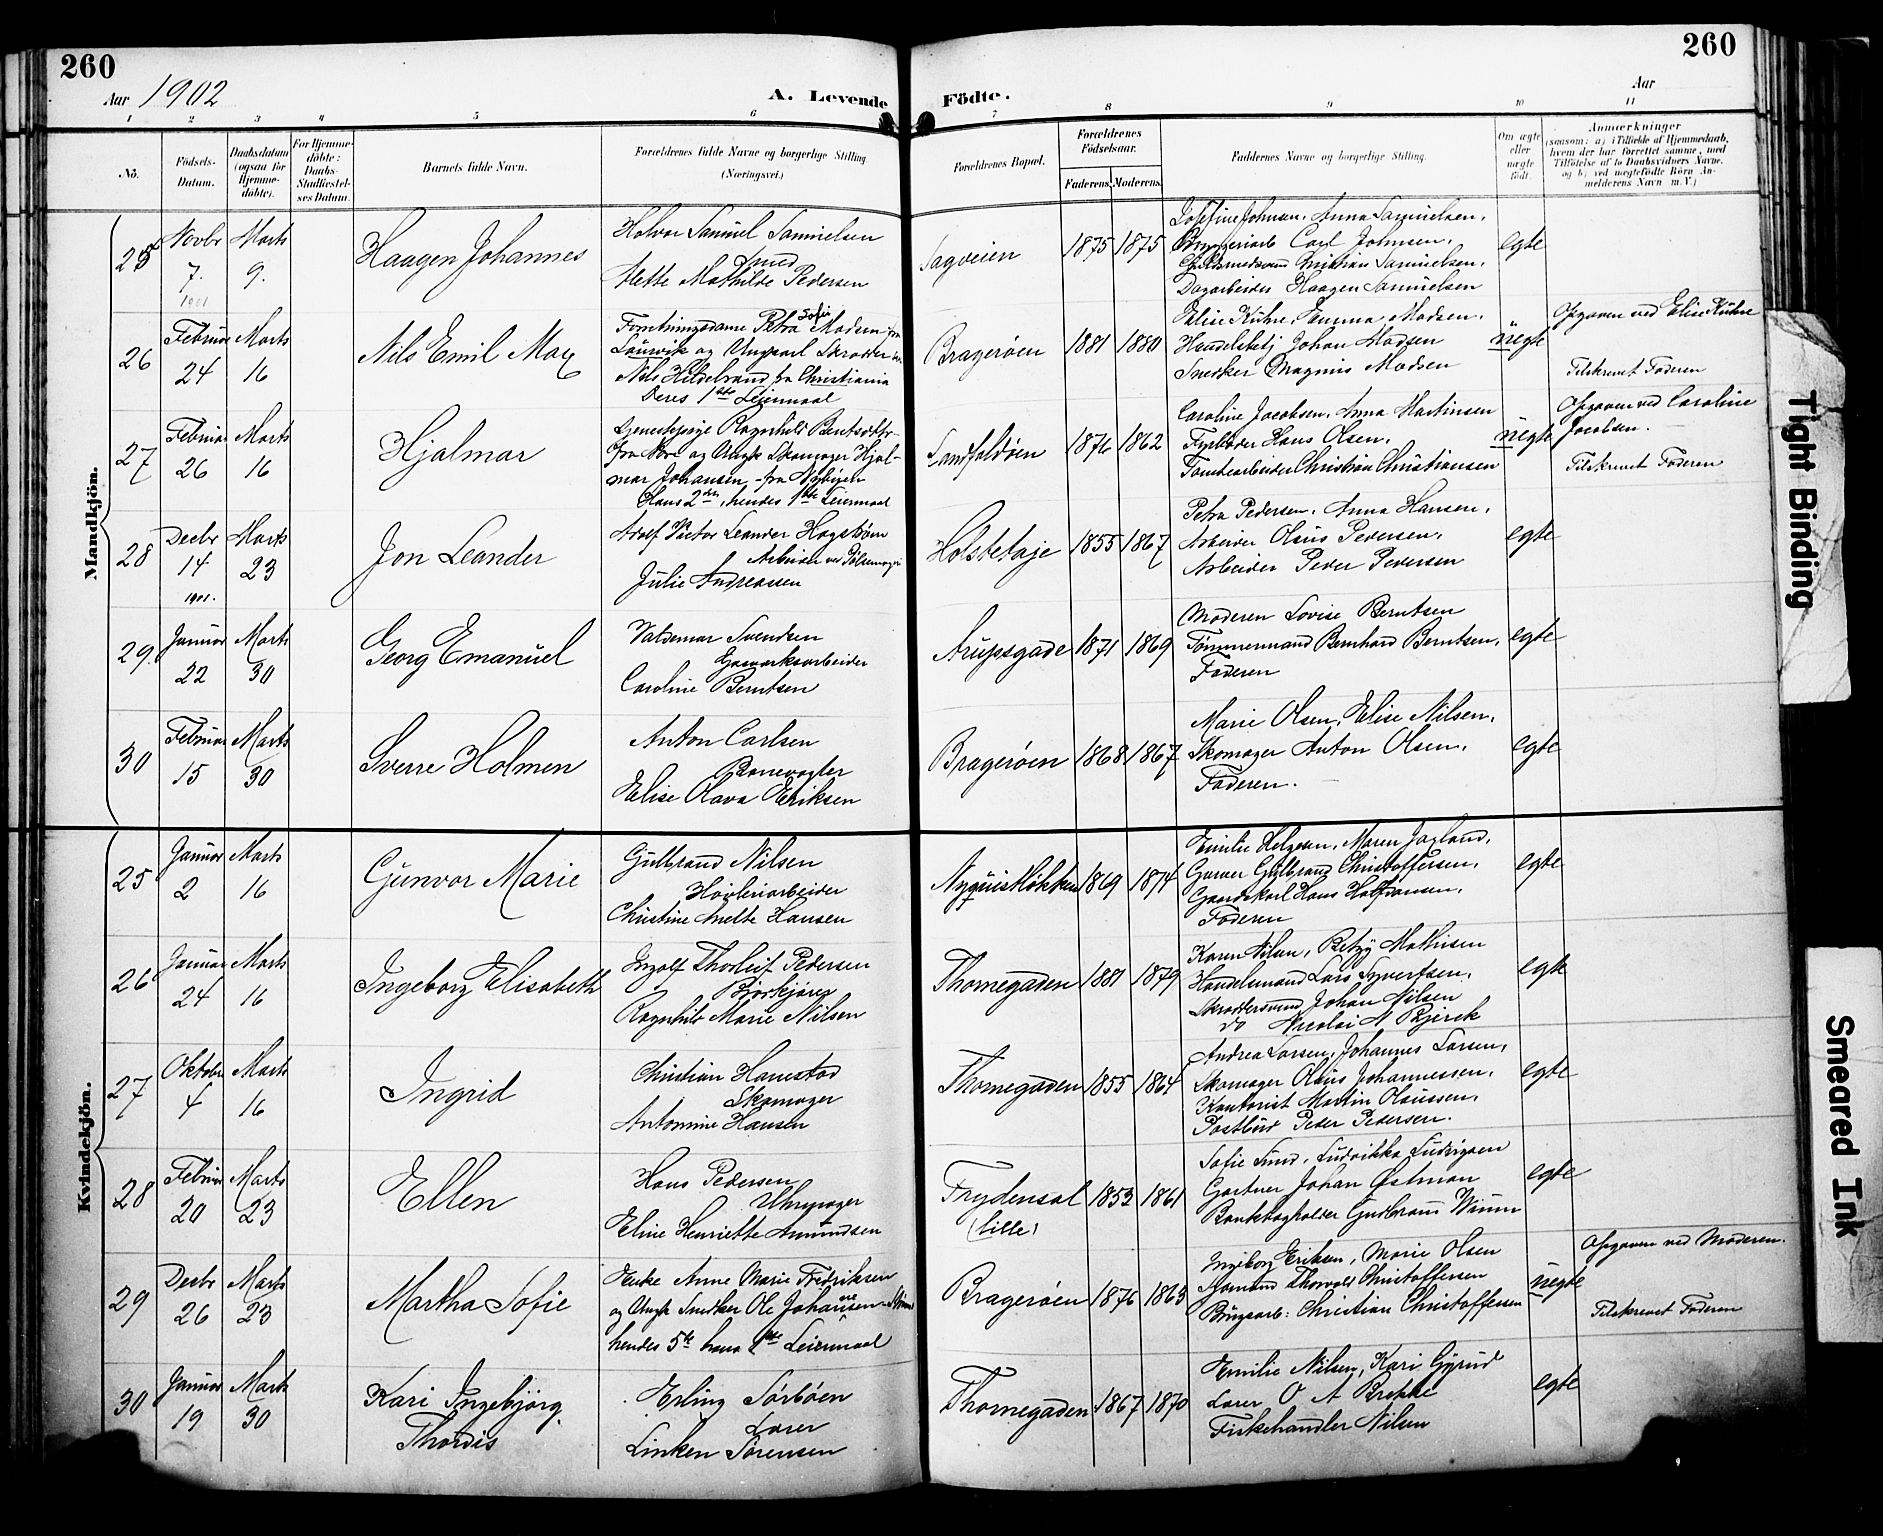 260
Aar 1902
A. Levende
Födte.
Aar
260
1 2 3 4 5 6 7 8 9 10 11
No.
Födsels-Datum.
Daabsdatum (ogsaa for Hjemme-döbte).
For Hjemme-döbte: Daabs-Stadfæstel-ses Datum.
Barnets fulde Navn.
Forældrenes fulde Navne og borgerlige Stilling (Næringsvei.)
Forældrenes Bopæl.
Forældrenes Födselsaar.
Faderens. Moderens.
Faddernes Navne og borgerlige Stilling.
Om ægte eller uægte födt.
Anmærkninger
(saasom: a) i Tilfælde af Hjemmedaab, hvem der har forrettet samme, med Tilföielse af to Daabsvidners Navne, og b) ved uegtefödte Börn An-melderens Navn m. V.)
Mandkjön.
25 Novbr 7. 1901 Marts 9.
Haagen Johannes
Halvor Samuel Samuelsen
Smed
Mette Mathilde Pedersen
Sagveien 1875 1875
Josefine Johnsen, Anna Samuelsen,
Bryggeriarb Carl Johnsen,
Guldsmedsvend Kristian Samuelsen,
Dagarbeider Haagen Samuelsen
egte
26 Februar 24 Marts 16
Nils Emil Max
Forretningsdame Petra Sofie Madsen fra
Laurvik og Ungkarl Skrædder
Nils Hildebrand fra Christiania
Deres 1ste Leiermaal
Bragerøen 1881 1880
Elise Kühre, Emma Madsen,
Handelsbetj Johan Madsen
Snedker Magnus Madsen
uegte
Opgaven ved Elise Kühre
Tilskrevet Faderen
27 Februar 26 Marts 16
Hjalmar
Tjenestepige Ragnhild Bentsdatter
fra Nore og Ungk Skomager Hjal-
mar Johansen fra Nybyen
Hans 2den, hendes 1ste Leiermaal
Landfaldøen 1876 1862
Caroline Jacobsen, Anna Martinsen
Fyrbøder Hans Olsen,
Tomtearbeider Christian Christiansen
uegte
Opgaven ved Caroline
Jacobsen.
Tilskrevet Faderen
28 Decbr 14 1901. Marts 23
Jon Leander
Adolf Victor Leander Hagstrøm
Arbeider ved Pølsemager
Julie Andreassen
Holsteløje 1855 1867
Petra Pedersen, Anna Hansen,
Arbeider Olaus Pedersen,
Arbeider Peder Pedersen
egte
29. Januar 22 Marts 30
Georg Emanuel
Valdemar Svendsen
Gasværksarbeider
Caroline Berntsen
Arupsgade 1871 1869
Moderen Lovise Berntsen
Tømmermand Bernhard Berntsen,
Faderen
egte
30 Februar 15 Marts 30
Sverre Holmen
Anton Carlsen
Banevogter
Elise Olava Eriksen
Bragerøen 1868 1867
Marie Olsen, Elise Nilsen,
Skomager Anton Olsen,
Faderen.
egte
Kvindekjön.
25 Januar 2 Marts 16
Gunvor Marie
Gulbrand Nilsen
Høvleriarbeider
Christine Anette Hansen
Nyquistløkken 1869 1874
Emilie Helgesen, Maren Jagland,
Garver Gulbrand Christoffersen,
Gaardskarl Hans Halfdansen,
Faderen
egte
26 Januar 24 Marts 16
Ingeborg Elisabeth
Ingolf Thorleif Pedersen
Ragnhild Marie Nilsen
Thornegaden 1881 1879
Karen Nilsen, Betzy Mathisen
Handelsmand Lars Syvertsen,
Skræddersvend Johan Nilsen
do Nicolai N Bjerck
egte
27 Oktober 4 Marts 16
Ingrid
Christian Hanestad
Skomager
Antonine Hansen
Thornegaden 1855 1864
Andrea Larsen, Johannes Larsen,
Skomager Olaus Johannessen,
Kontorist Martin Olaussen,
Postbud Peder Pedersen.
egte
28 Februar 20 Marts 23
Ellen
Hans Pedersen
Uhrmager
Eline Henriette Amundsen
Frydensal
(lille) 1853 1861
Sofie Lund, Ludvikka Ludvigsen
Gartner Johan Østman
Bankbogholder Gudbrand Wium
egte
29 Decbr 26 Marts 23
Martha Sofie
Enke Anne Marie Fredriksen
og Ungk Snedker Ole Johansen
hendes 5te hans 1ste Leiermaal
Bragerøen 1876 1863
Ingeborg Eriksen, Marie Olsen
Sømand Thorvald Christoffersen
Brugsarb: Christian Christoffersen
uegte
Opgaven ved Moderen.
Tilskrevet Faderen
30 Januar 19 Marts 30
Kari Ingebjörg
Thordis
Erling Sörböen
Lærer
Linken Sörensen
Thornegaden 1867 1870
Emilie Nilsen, Kari Gjörud
Lærer O A Brekke
Fiskehandler Nilsen
egte
Tight Binding
Smeared Ink